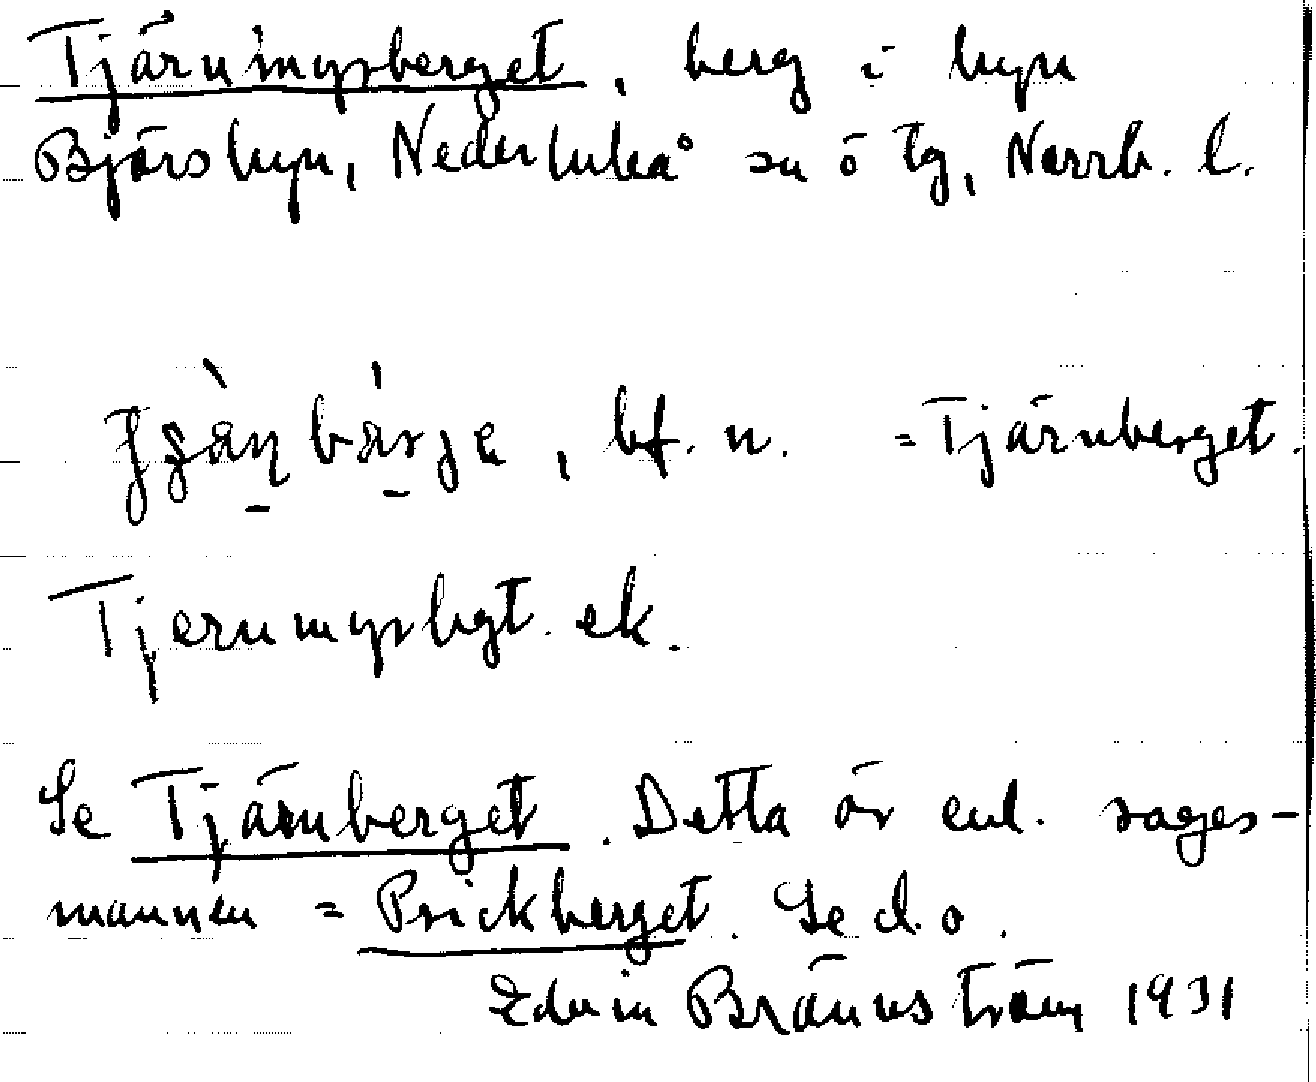 Tjärnmyrberget, berg i byn
Björsbyn, Nederluleå sn ö tg, Norrb. l.
bf. n. = Tjärnberget.
Tjernmyrbgt. ek.
Se Tjärnberget. Detta är enl. sages-
mannen = Prickberget. Se d. o.
Edvin Brännström 1931